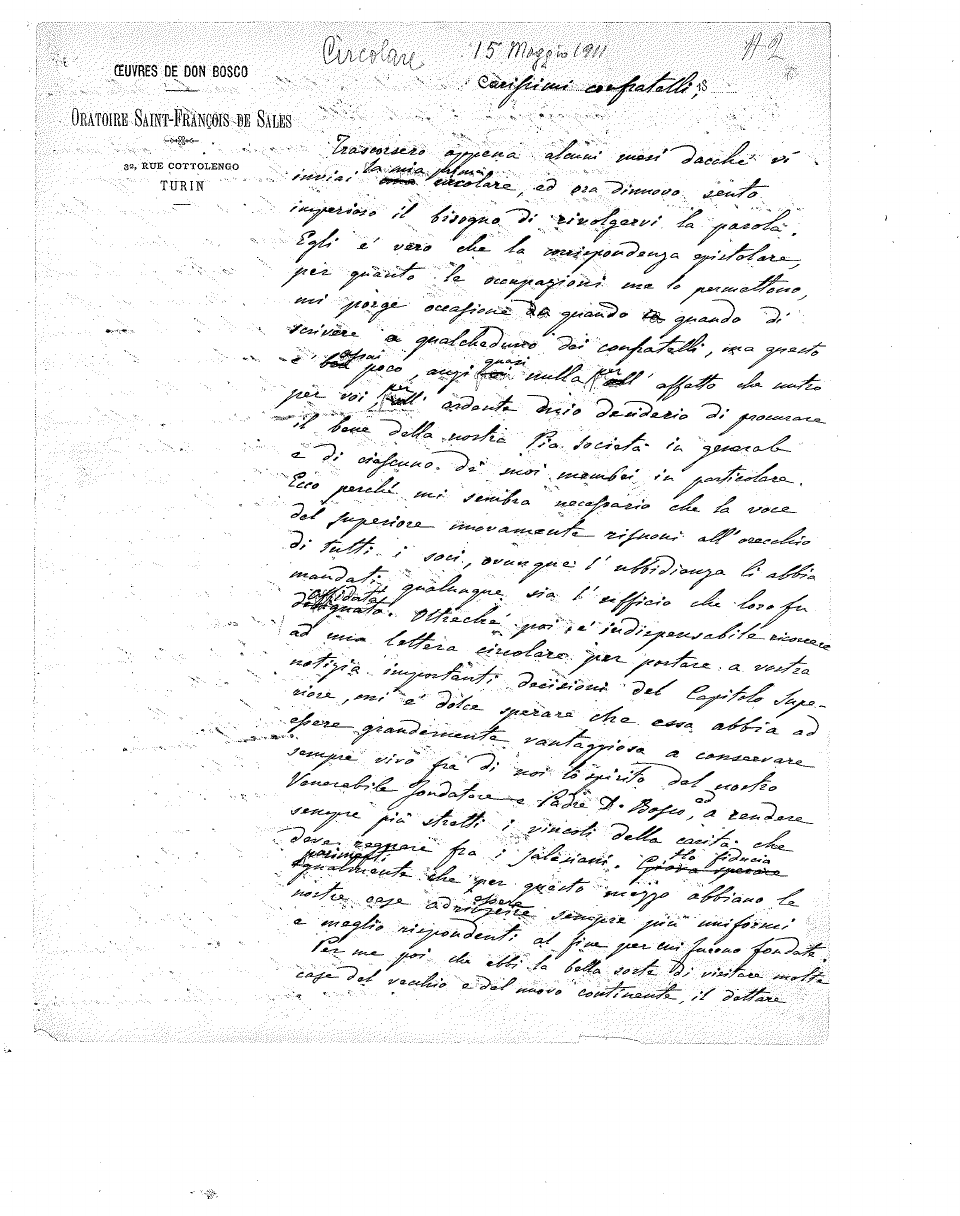 Circolare 15 Maggio 1911 N 2
ŒUVRES DE DON BOSCO
ORATOIRE SAINT-FRANÇOIS DE SALES
32, RUE COTTOLENGO
TURIN
Carissimi confratelli, 18
Trascorsero appena alcuni mesi dacché vi
inviai la mia prima circolare, ed ora dinnovo sento
imperioso il bisogno di rivolgervi la parola.
Egli é vero che la corrispondenza epistolare,
per quanto le occupazioni me lo permettono,
mi porge occasione quando quando di
scrivere a qualcheduno dei confratelli, ma questo
é assai poco, anzi quasi nulla per l'affetto che nutro
per voi, per l'ardente desiderio di procurare
il bene della nostra Pia Società in generale
e di ciascuno de' suoi membri in particolare.
Ecco perché mi sembra necessario che la voce
del superiore nuovamente risuoni all'orecchio
di tutti i soci, ovunque l'ubbidienza li abbia
mandati, qualunque sia l'ufficio che loro fu
affidato. Oltreché poi é indispensabile ricorrere
ad una lettera circolare per portare a vostra
notizia importanti decisioni del Capitolo Supe-
riore, mi é dolce sperare che essa abbia ad
essere grandemente vantaggiosa a conservare
sempre vivo fra di noi lo spirito del nostro
Venerabile Fondatore e Padre D. Bosco, ed a rendere
sempre più stretti i vincoli della carità che
deve regnare fra i Salesiani. Ho fiducia
parimenti che per questo mezzo abbiano le
nostre case ad essere sempre più uniformi
e meglio rispondenti al fine per cui furono fondate.
Per me poi che ebbi la bella sorte di visitare molte
case del vecchio e del nuovo continente, il dettare